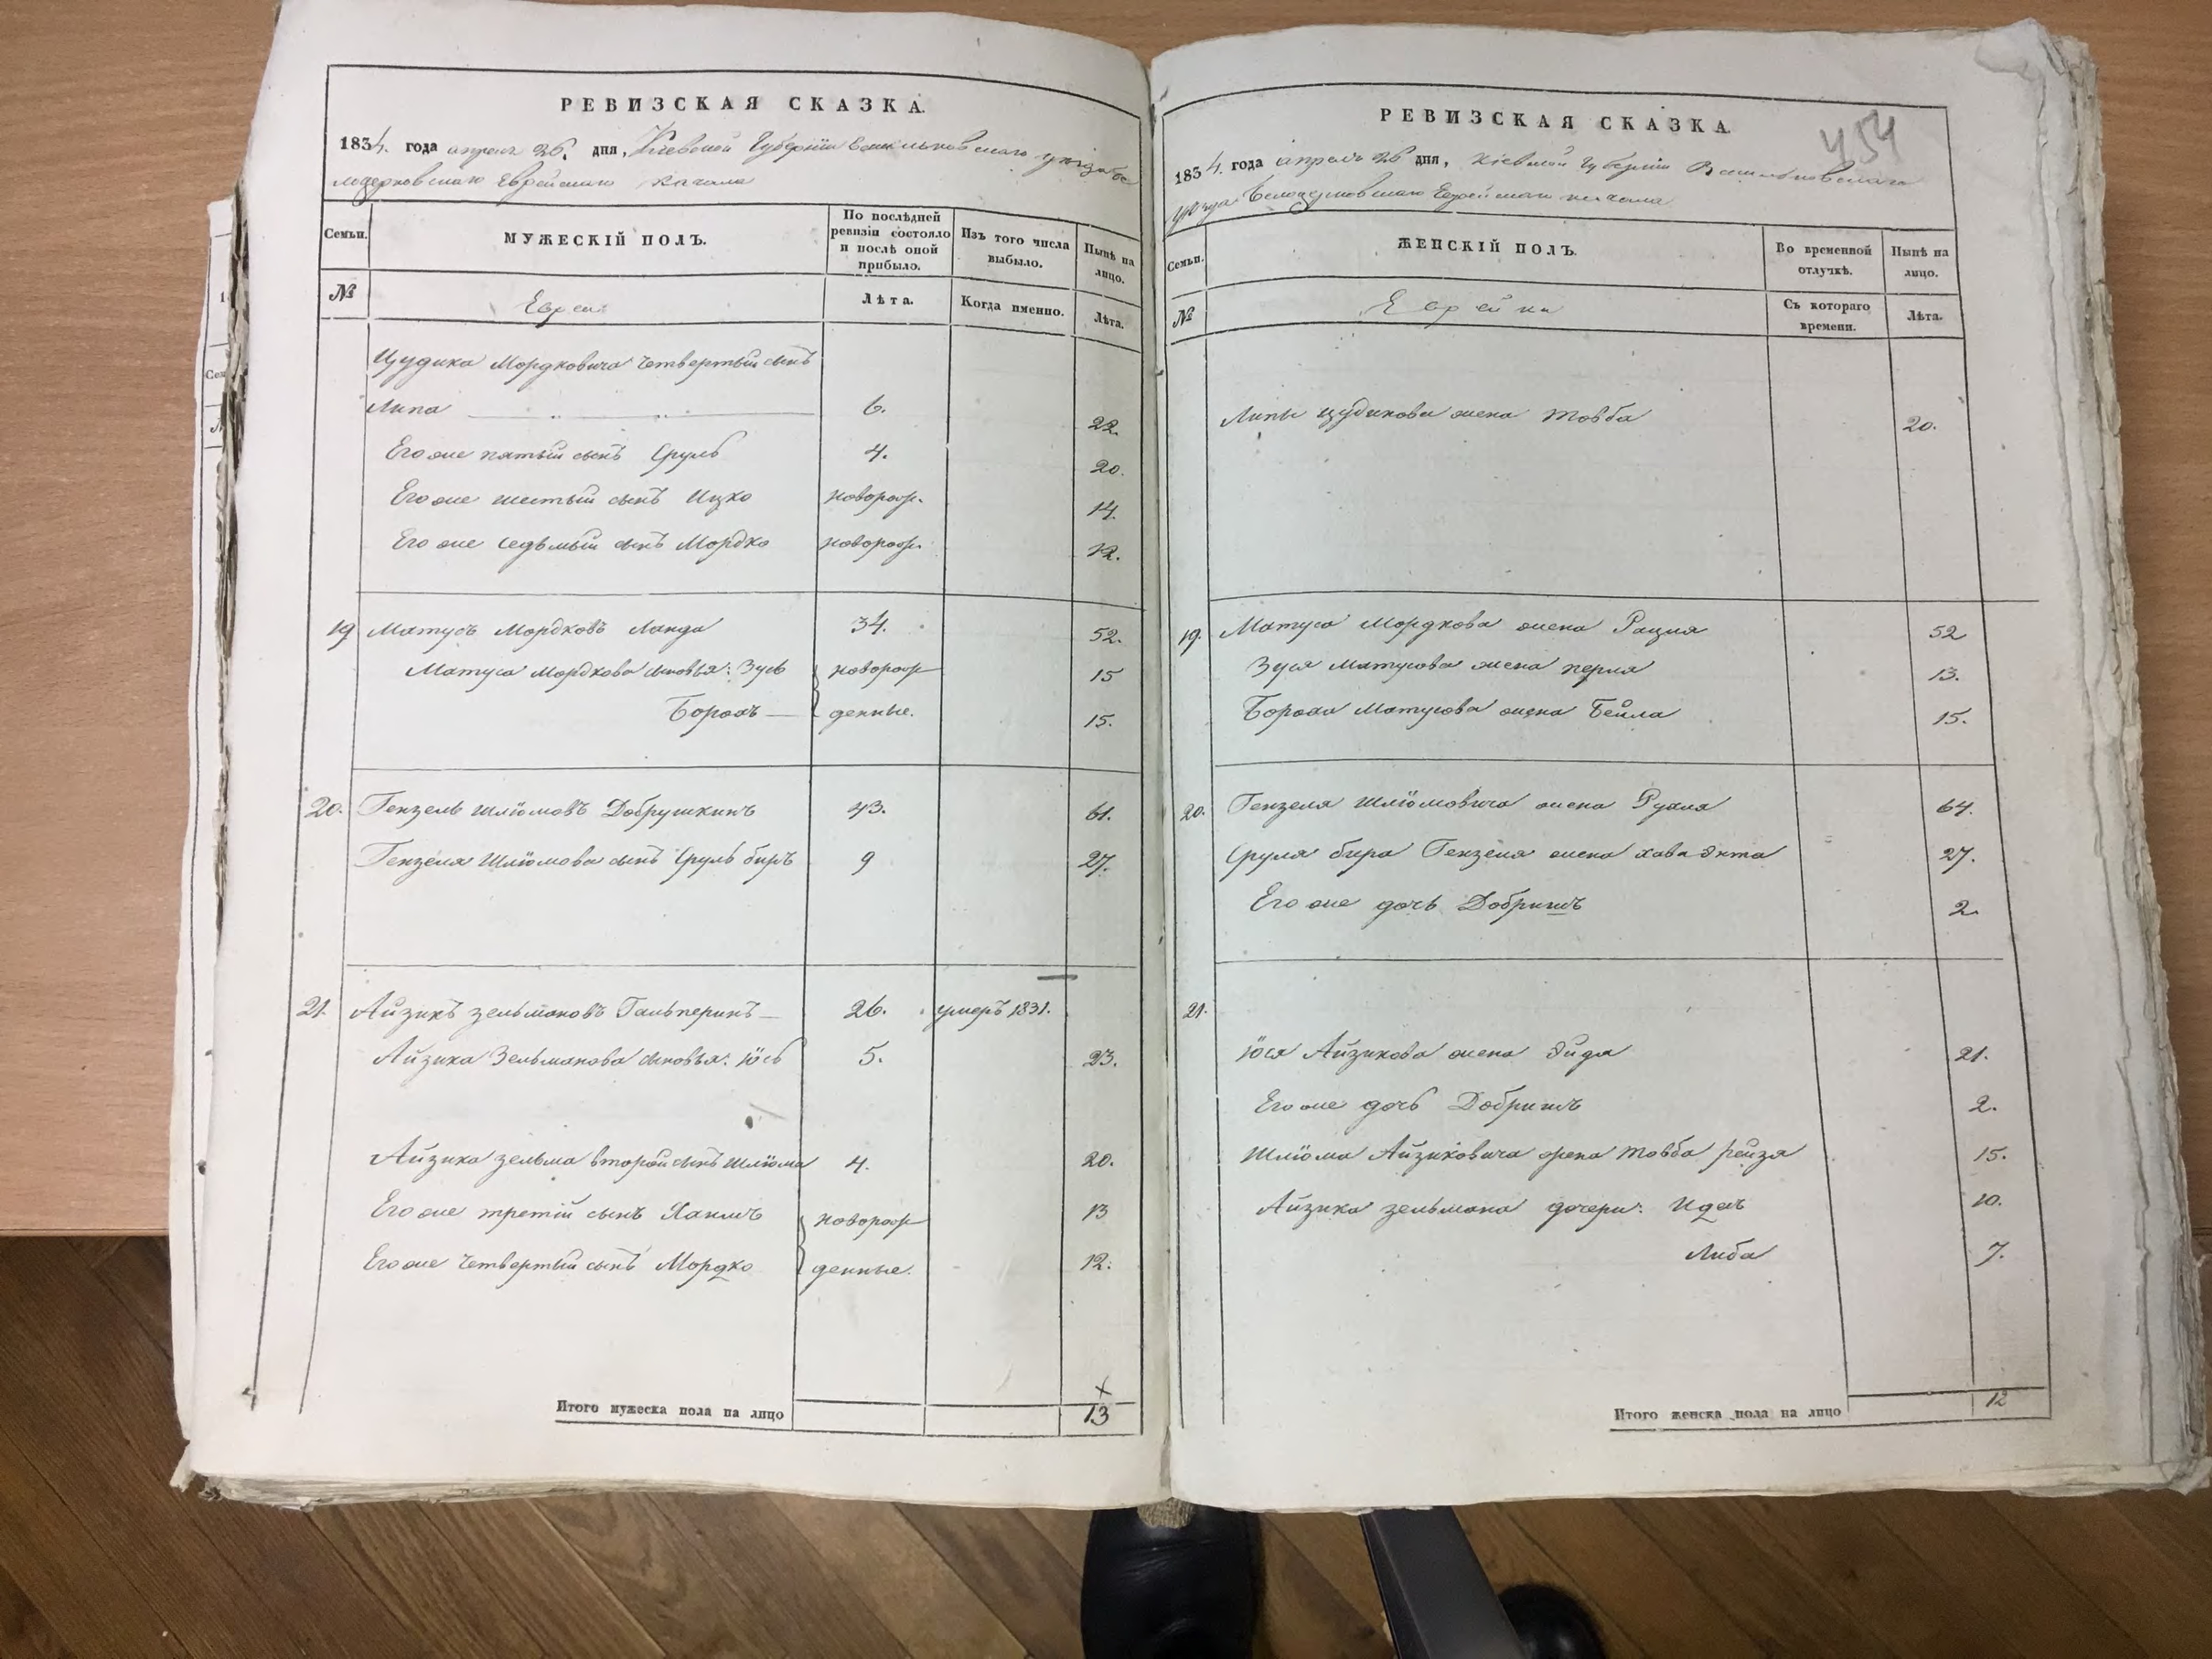 РЕВИЗСКАЯ СКАЗКА.
1834. года апреля 26. дня, Киевской Губернии Васильковского уезда Бе
лоцерковского Еврейского Кагала
Семьи.
МУЖЕСКІЙ ПОЛЪ.
По послѣдней ревизіи состояло и послѣ оной прибыло.
Изъ того числа выбыло.
Нынѣ на лицо.
№
Евреи
Лѣта.
Когда именно.
Лѣта.
Цудика Мордковича четвертый сынъ
Липа 6. 22.
Его же пятый сынъ Сруль 4. 20.
Его же шестый сынъ Ицко новорож. 14.
Его же седьмый сынъ Мордко новорож. 12.
19 Матусъ Мордковъ Ланда 34. 52.
Матуса Мордкова сыновья: Зусь новорож 15
Борохъ денные. 15.
20. Гензель Шлїомовъ Добрушкинъ 43. 61.
Гензеля Шлїомова сынъ Сруль биръ 9 27.
21. Айзикъ Зельмановъ Гальперинъ 26. умеръ 1831.
Айзика Зельманова сыновья: Іось 5. 23.
Айзика Зельма второй сынъ Шлїома 4. 20.
Его же третій сынъ Хаимъ новорож 13
Его же четвертый сынъ Мордко денные. 12.
Итого мужеска пола на лицо 13
РЕВИЗСКАЯ СКАЗКА.
454
1834. года апреля 26 дня, Кіевской Губерніи Васильковского
уезда Белоцерковского Еврейского кагала
Семьи.
ЖЕНСКІЙ ПОЛЪ.
Во временной отлучкѣ.
Нынѣ на лицо.
№
Еврейки
Съ котораго времени.
Лѣта.
Липы Цудикова жена Товба 20.
19. Матуса Мордкова жена Рация 52
Зуся Матусова жена Перля 13.
Бороха Матусова жена Бейла 15.
20. Гензеля Шлїомовича жена Рухля 64.
Сруля бира Гензеля жена Хава Энта 27.
Его же дочь Добришъ 2.
21.
Іося Айзикова жена Эйдя 21.
Его же дочь Добришъ 2.
Шлїома Айзиковича жена Товба Рейзя 15.
Айзика Зельмана дочери: Идесъ 10.
Либа 7.
Итого женска пола на лицо 12